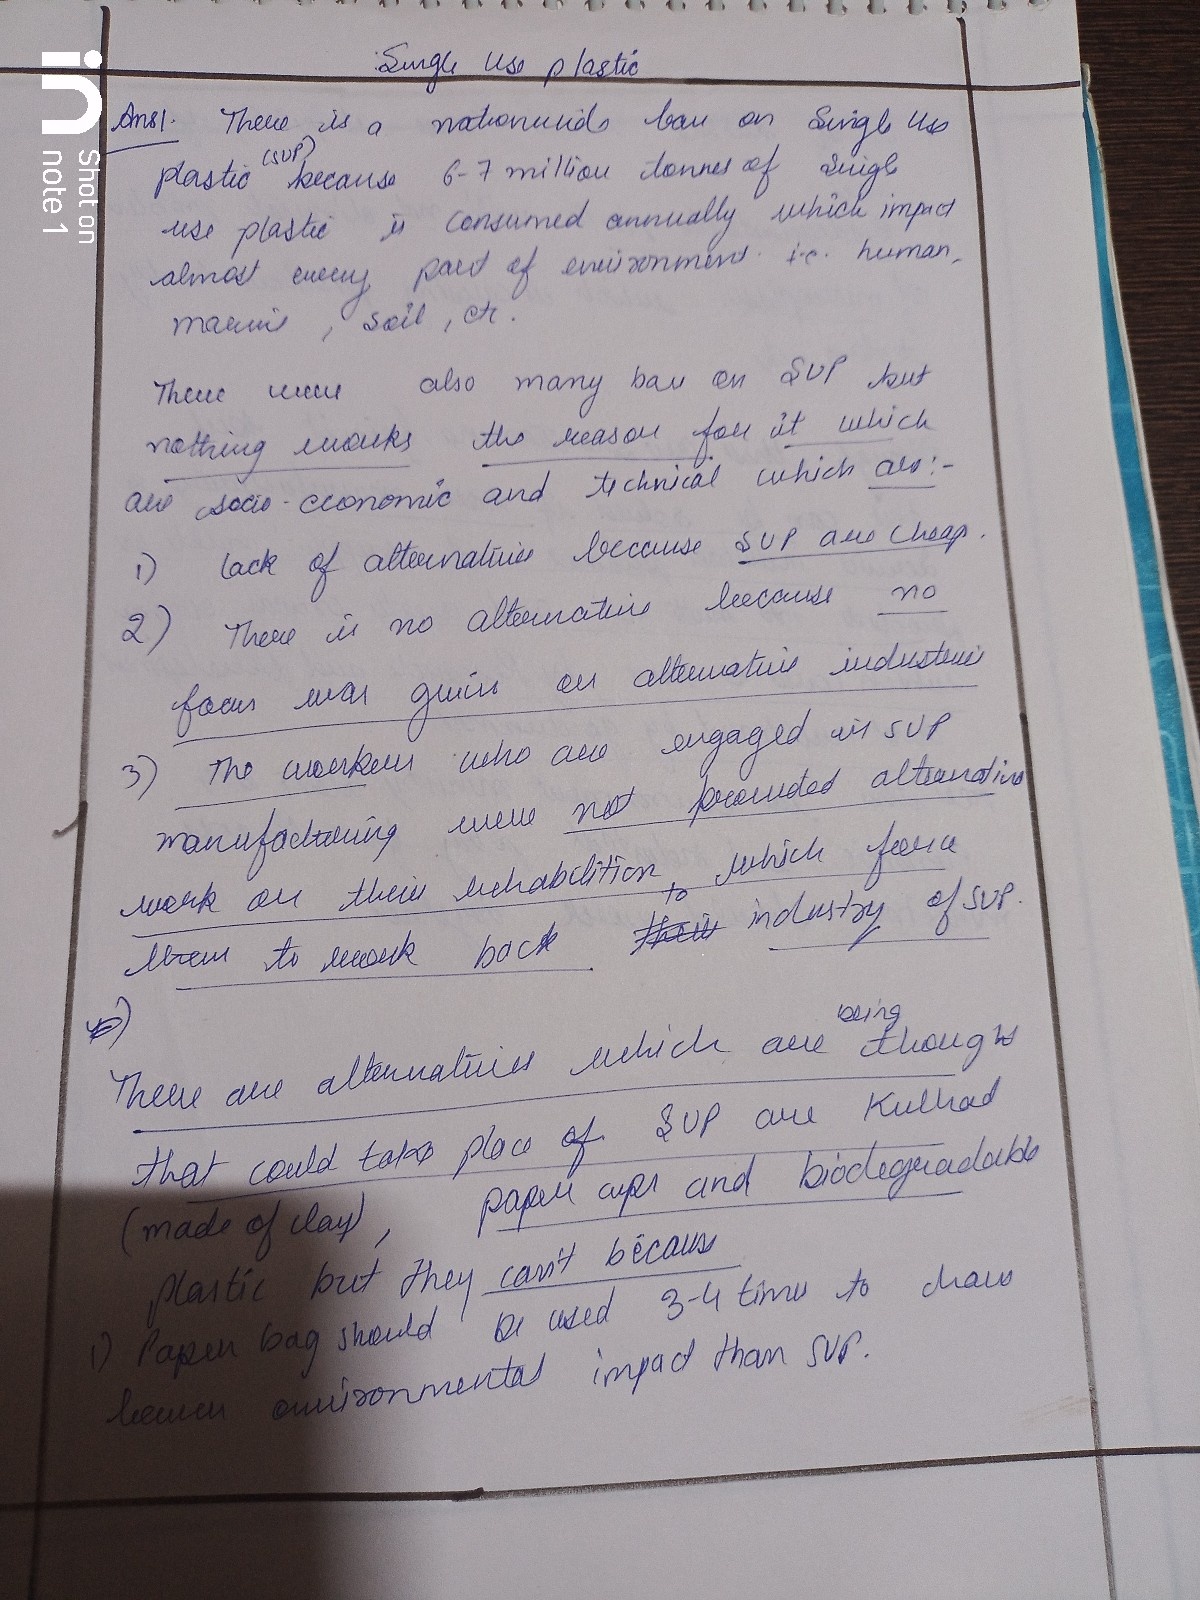 Single Use plastic
Ans1. There is a nationwide ban on Single Use
plastic (SUP) because 6-7 million tonnes of Single
use plastic is consumed annually which impact
almost every part of environment i.e. human,
marine, soil, etc.
There were also many ban on SUP but
nothing works the reason for it which
are socio-economic and technical which are:-
1) lack of alternative because SUP are cheap.
2) There is no alternative because no
focus was given on alternative industries
3) The workers who are engaged in SUP
manufacturing were not provided alternative
work or their rehabilition which force
them to work back to industry of SUP.
There are alternatives which are being thought
that could take place of SUP are Kulhad
(made of clay), paper cups and biodegradable
plastic but they can't because
1) Paper bag should be used 3-4 time to have
lower environmental impact than SUP.
Shot on
in note 1